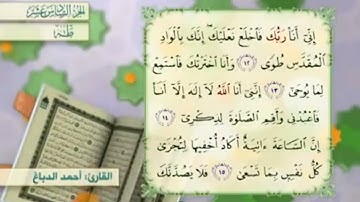 الجزء السادس عشر
طه
إِنِّي أَنَا رَبُّكَ فَاخْلَعْ نَعْلَيْكَ إِنَّكَ بِالْوَادِ
الْمُقَدَّسِ طُوًى ١٢ وَأَنَا اخْتَرْتُكَ فَاسْتَمِعْ
لِمَا يُوحَىٰ ١٣ إِنَّنِي أَنَا اللَّهُ لَا إِلَٰهَ إِلَّا أَنَا
فَاعْبُدْنِي وَأَقِمِ الصَّلَوٰةَ لِذِكْرِي ١٤
إِنَّ السَّاعَةَ ءَاتِيَةٌ أَكَادُ أُخْفِيهَا لِتُجْزَىٰ
كُلُّ نَفْسٍ بِمَا تَسْعَىٰ ١٥ فَلَا يَصُدَّنَّكَ
القارئ: أحمد الدباغ